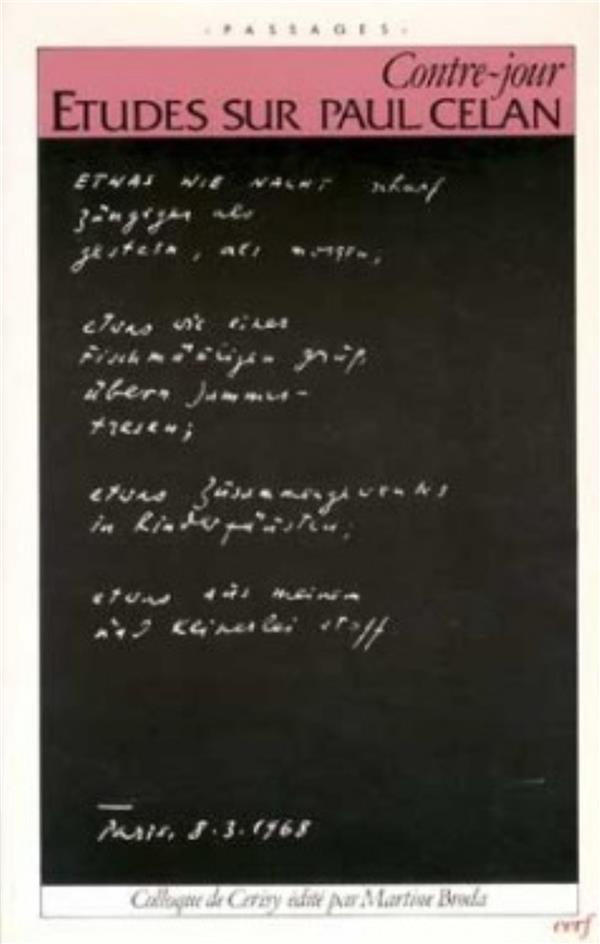 PASSAGES
Contre-jour
ETUDES SUR PAUL CELAN
ETWAS WIE NACHT scharf
züngiger als
gestern, als morgen;
etwas wie einer
Fischmäuligen gruß
übern Jammer-
tresen;
etwas Zusammengewehtes
in Kinderfäusten;
etwas aus meinem
und keinerlei stoff
Paris, 8.3.1968
Colloque de Cerisy édité par Martine Broda
cerf